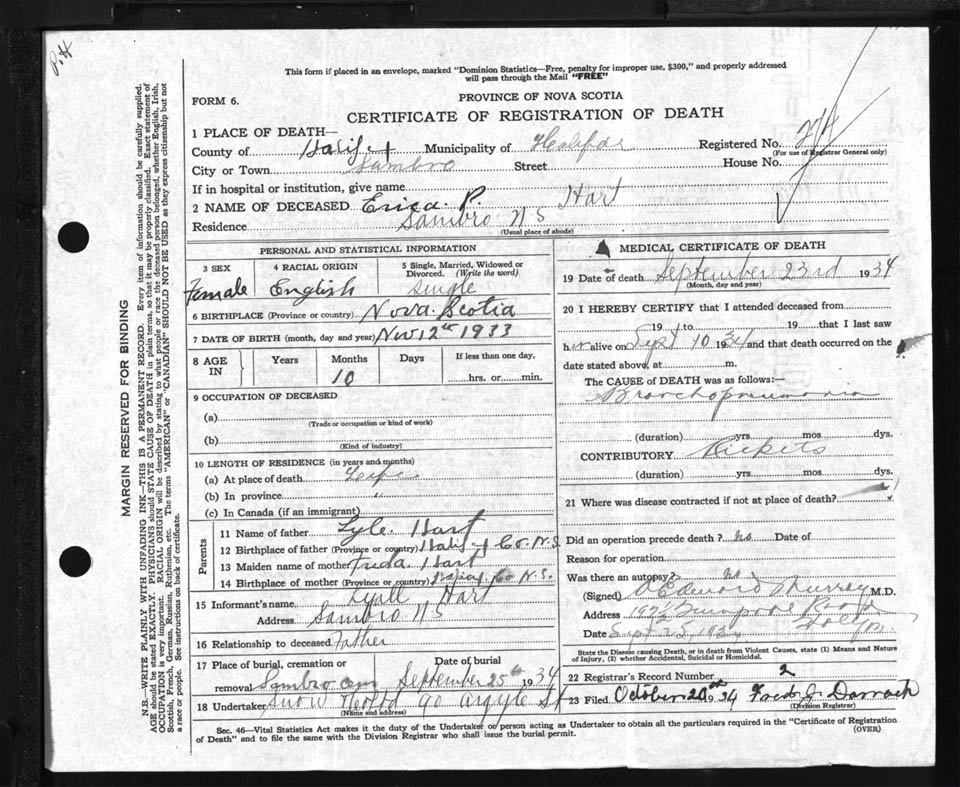 P.H
This form if placed in an envelope, marked "Dominion Statistics—Free, penalty for improper use, $300," and properly addressed
will pass through the Mail "FREE"
FORM 6.
PROVINCE OF NOVA SCOTIA
CERTIFICATE OF REGISTRATION OF DEATH
1 PLACE OF DEATH—
County of Halifax Municipality of Halifax Registered No.
(For use of Registrar General only)
City or Town Sambro Street House No.
If in hospital or institution, give name
2 NAME OF DECEASED Erica. P. Hart
Residence Sambro N S
(Usual place of abode)
PERSONAL AND STATISTICAL INFORMATION
3 SEX
Female
4 RACIAL ORIGIN
English
5 Single, Married, Widowed or
Divorced. (Write the word)
Single
6 BIRTHPLACE (Province or country) Nova Scotia
7 DATE OF BIRTH (month, day and year) Nov 12th 1933
8 AGE
IN
Years
Months
10
Days
If less than one day.
hrs. or min.
9 OCCUPATION OF DECEASED
(a)
(Trade or occupation or kind of work)
(b)
(Kind of industry)
10 LENGTH OF RESIDENCE (in years and months)
(a) At place of death Life
(b) In province "
(c) In Canada (if an immigrant)
Parents
11 Name of father Lyle. Hart
12 Birthplace of father (Province or country) Halifax Co. N.S.
13 Maiden name of mother Hart
14 Birthplace of mother (Province or country) Co N.S.
15 Informant's name Lyall Hart
Address Sambro N S
16 Relationship to deceased father
17 Place of burial, cremation or
removal Sambro Cem
Date of burial
September 25th 1934
18 Undertaker Snow & Co Ltd 90 Argyle St
(Name and address)
MEDICAL CERTIFICATE OF DEATH
19 Date of death September 23rd 1934
(Month, day and year)
20 I HEREBY CERTIFY that I attended deceased from
19 to 19 that I last saw
her alive on Sept 10 1934 and that death occurred on the
date stated above, at m.
The CAUSE of DEATH was as follows:—
Bronchopneumonia
(duration) yrs. mos. dys.
CONTRIBUTORY Rickets
(duration) yrs. mos. dys.
21 Where was disease contracted if not at place of death?
Did an operation precede death? No Date of
Reason for operation
Was there an autopsy? No
(Signed) Edward Murray M.D.
Address Road
Date Sept 25, 1934 Halifax
State the Disease causing Death, or in death from Violent Causes, state (1) Means and
Nature of Injury, (2) whether Accidental, Suicidal or Homicidal.
22 Registrar's Record Number 2
23 Filed October 20th 1934 Fred J. Darrach
(Division Registrar)
Sec. 46—Vital Statistics Act makes it the duty of the Undertaker or person acting as Undertaker to obtain all the particulars required in the "Certificate of Registration
of Death" and to file the same with the Division Registrar who shall issue the burial permit.
(OVER)
MARGIN RESERVED FOR BINDING
N.B.—WRITE PLAINLY WITH UNFADING INK—THIS IS A PERMANENT RECORD. Every item of information should be carefully supplied.
AGE should be stated EXACTLY. PHYSICIANS should STATE CAUSE OF DEATH in plain terms, so that it may be properly classified. Exact statement of
OCCUPATION is very important. RACIAL ORIGIN will be described by stating to what people or race the deceased person belonged, whether English, Irish,
Scottish, French, German, Russian, Ruthenian, etc. The terms "AMERICAN" or "CANADIAN" SHOULD NOT BE USED as they express citizenship but not
a race or people. See instructions on back of certificate.